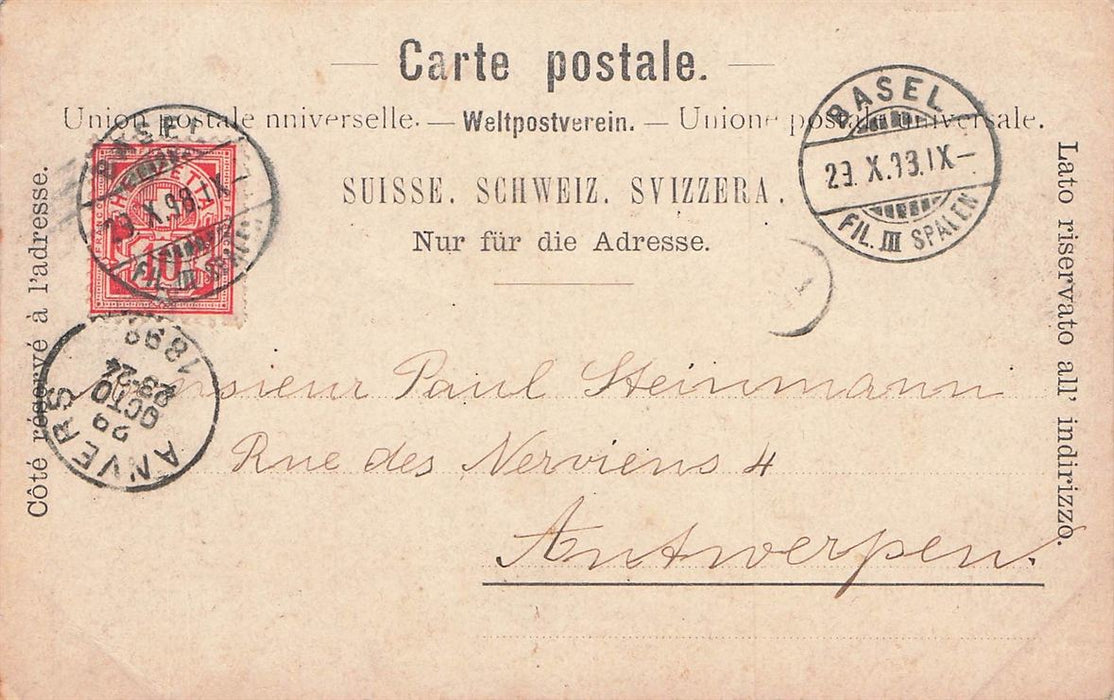 Carte postale.
Union postale nniverselle. — Weltpostverein. — Unione postale universale.
SUISSE. SCHWEIZ. SVIZZERA.
Nur für die Adresse.
Côté réservé à l'adresse.
Lato riservato all' indirizzo.
BASEL
29.X.98.IX—
FIL. III SPALEN
BASEL
29.X.98.IX—
FIL. III SPALEN
FRANCO
HELVETIA
10
ANVERS
29
OCTO
1898
Monsieur Paul Steinmann
Rue des Nerviens 4
Antwerpen.